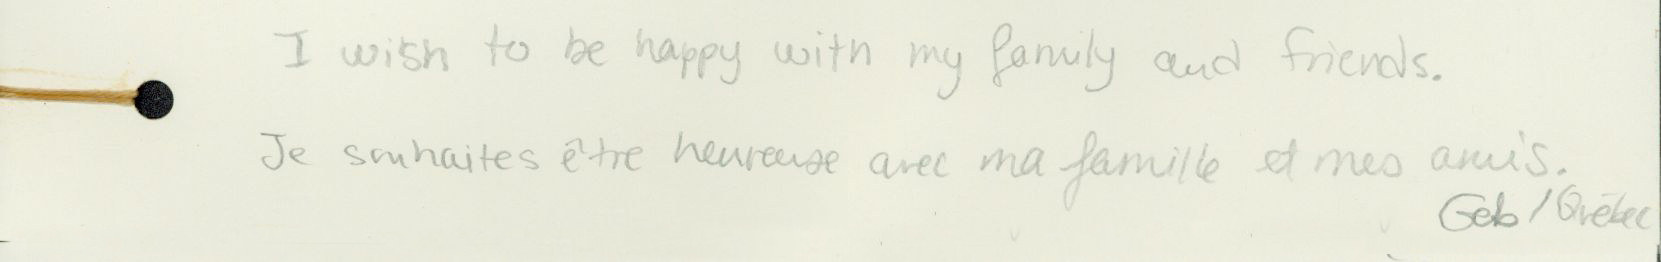 I wish to be happy with my family and friends.
Je souhaites être heureuse avec ma famille et mes amis.
Geb / Québec